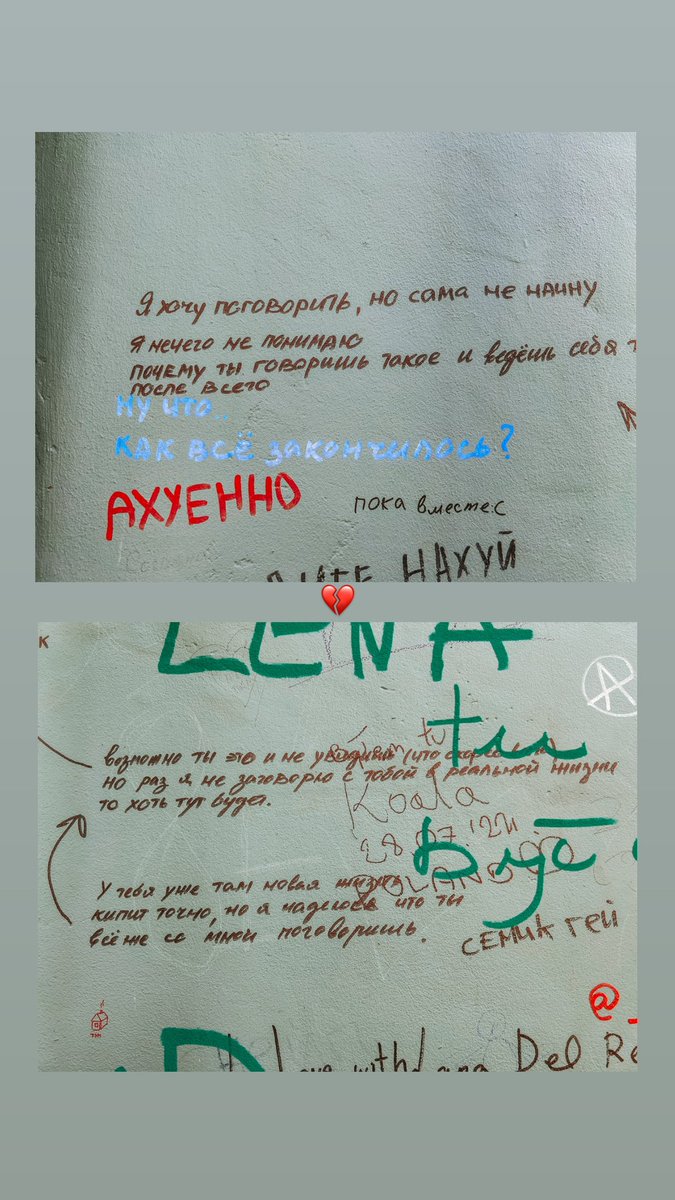 Я хочу поговорить, но сама не начну
Я нечего не понимаю
почему ты говоришь такое и ведёшь себя т
после всего
Ну что..
КАК ВСЁ закончилось?
АХУЕННО
пока вместе:с
НАХУЙ
💔
LENA
к
A
tu
возможно ты это и не увидишь (что скорее
но раз я не заговорю с тобой в реальной жизни
то хоть тут будет.
Koala
28.07.'22
POLAND
У тебя уже там новая жизнь
кипит точно, но я надеюсь что ты
всё же со мной поговоришь.
СЕМИА ГЕЙ
@
Love with Lana Del Re